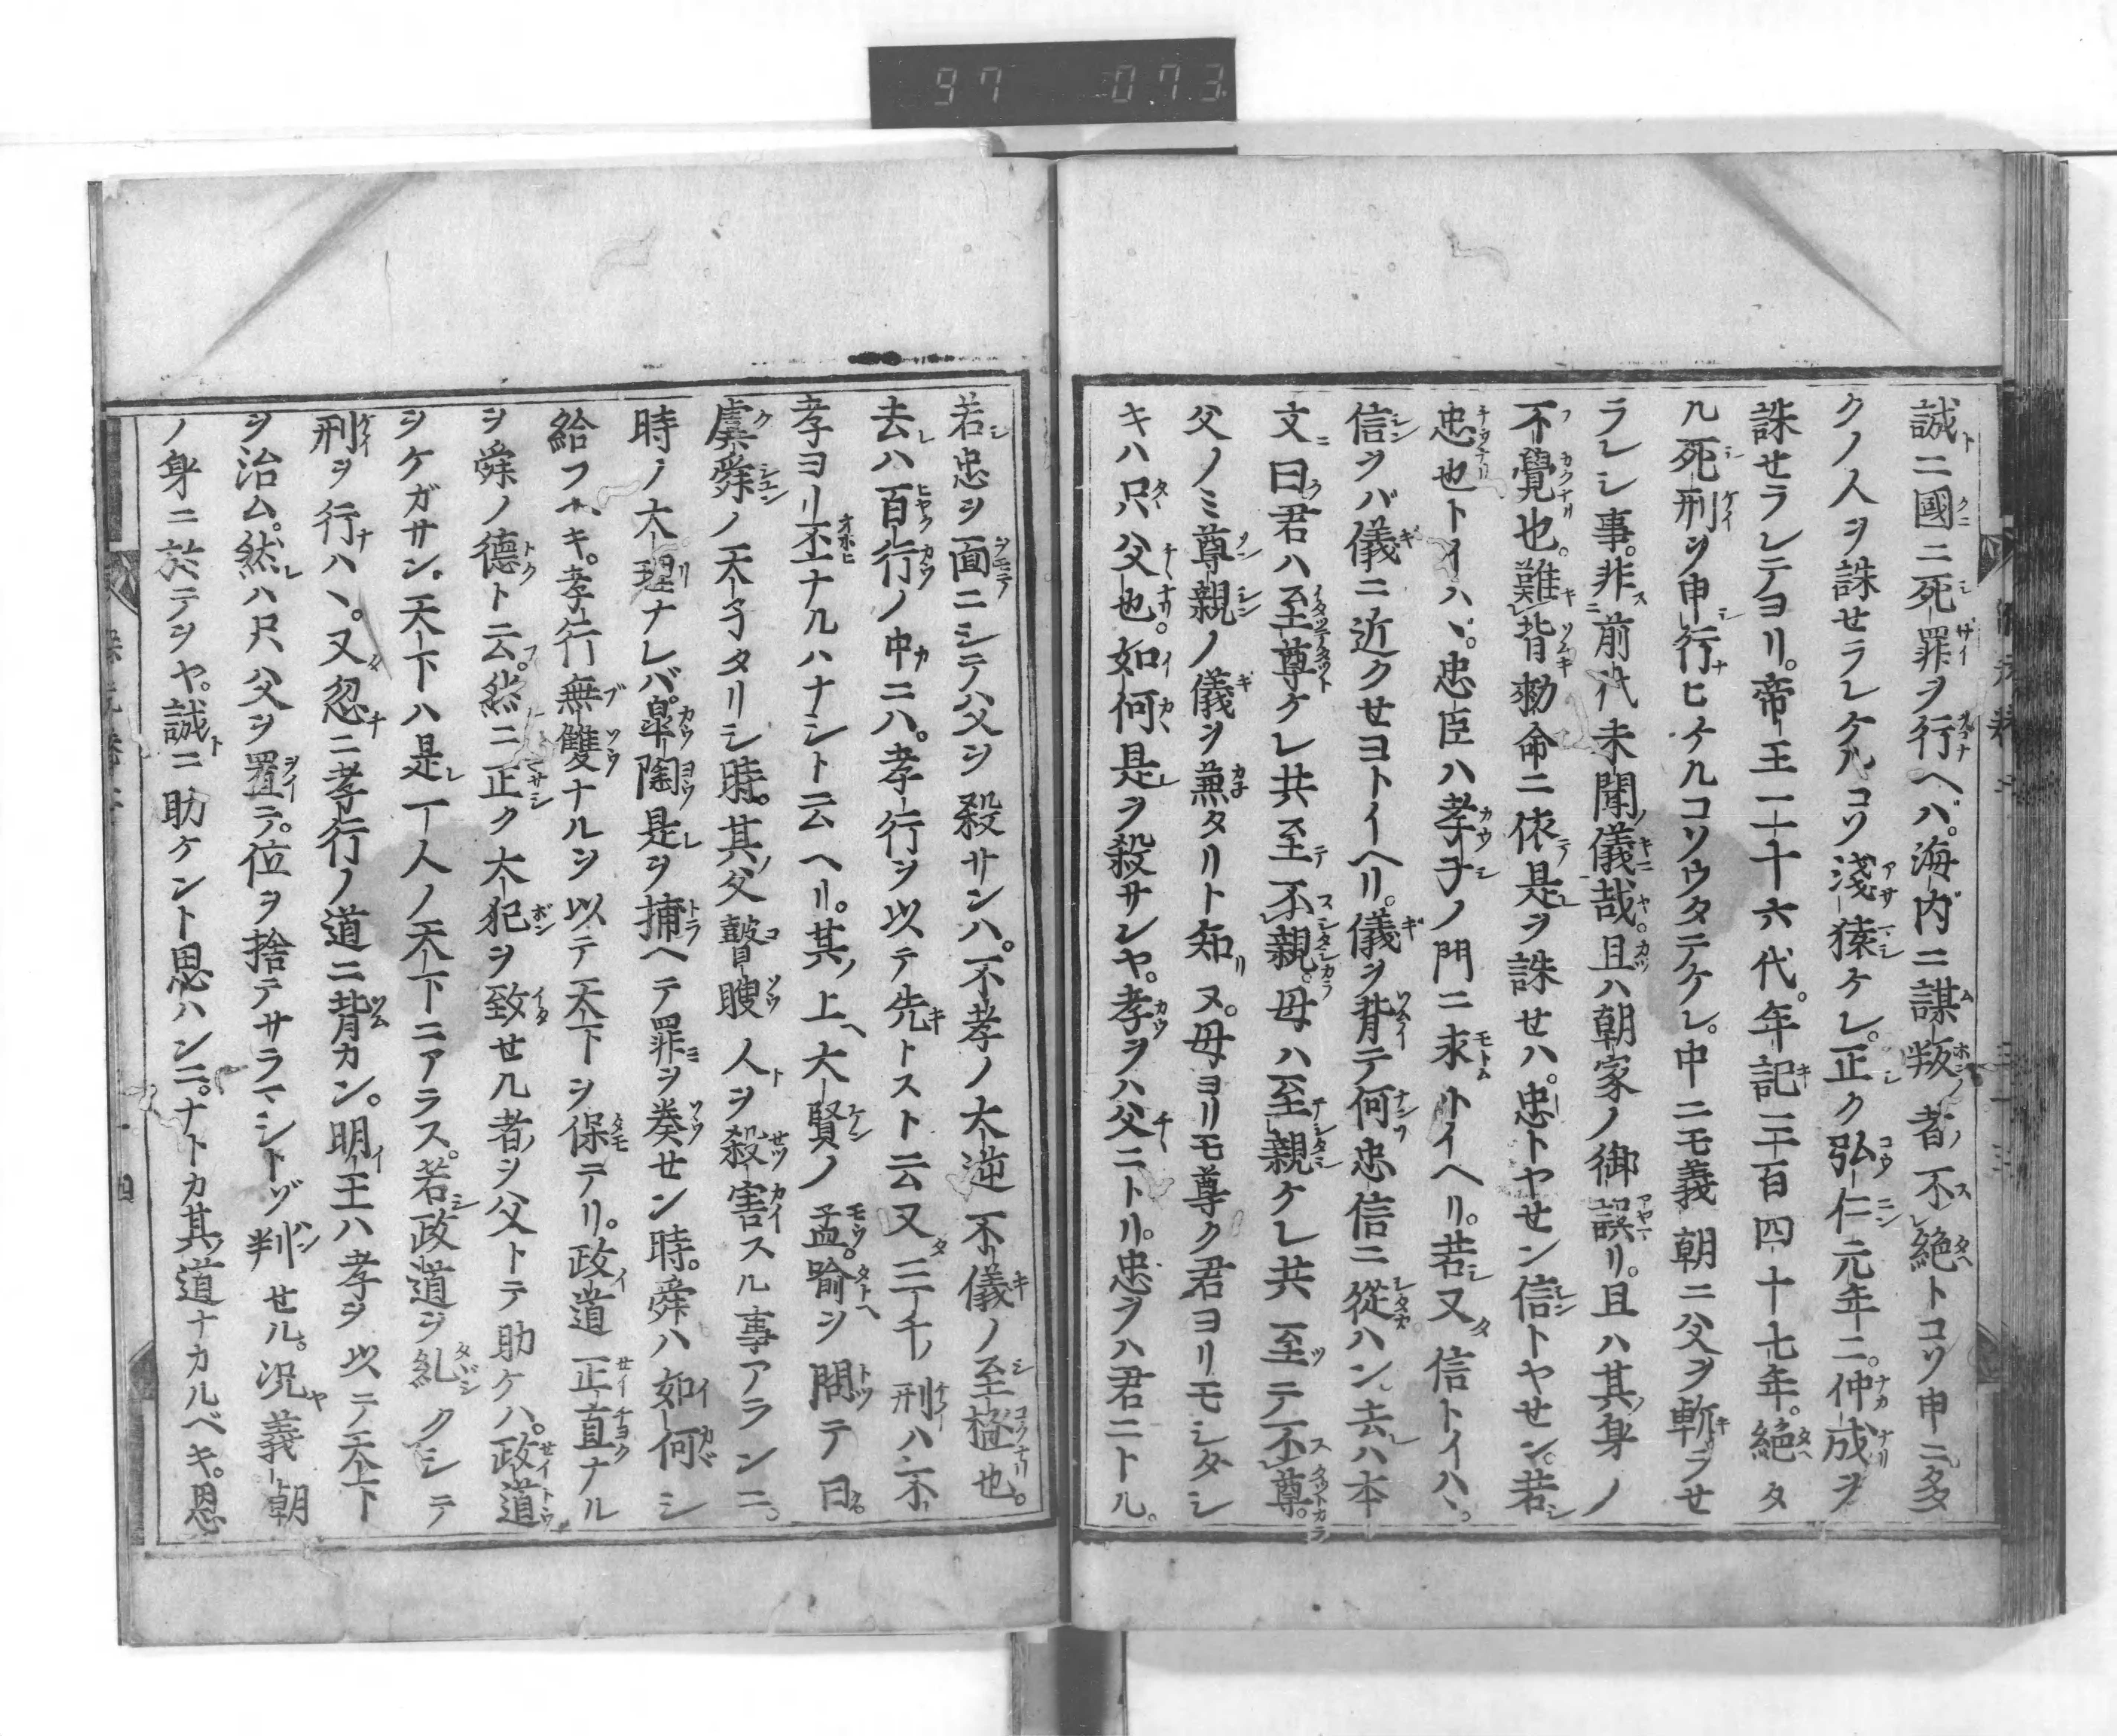 97 073
誠ニ國ニ死罪ヲ行ヘバ。海内ニ謀叛ノ者不絶トコソ申ニ。多
クノ人ヲ誅セラレケルコソ淺猿ケレ。正ク弘仁元年ニ。仲成ヲ
誅セラレテヨリ。帝王二十六代。年記三百四十七年。絶タ
ル死刑ヲ申行ヒケルコソウタテケレ。中ニモ義朝ニ父ヲ斬ラセ
ラレシ事。非前代未聞儀哉。且ハ朝家ノ御誤リ。且ハ其身ノ
不覺也。難背勅命ニ依是ヲ誅セハ。忠トヤセン信トヤセン。若
忠也トイハヽ。忠臣ハ孝子ノ門ニ求トイヘリ。若又信トイハヽ。
信ヲバ儀ニ近クセヨトイヘリ。儀ヲ背テ何忠信ニ從ハン。去ハ本
文ニ曰君ハ至尊ケレ共至テ不親。母ハ至親ケレ共至テ不尊。
父ノミ尊親ノ儀ヲ兼タリト知ヌ。母ヨリモ尊ク君ヨリモシタシ
キハ只父也。如何是ヲ殺サレヤ。孝ヲハ父ニトリ。忠ヲハ君ニトル。
若忠ヲ面ニシテハ父ヲ殺サンハ。不孝ノ大逆不儀ノ至極也。
去ハ百行ノ中ニハ。孝行ヲ以テ先トスト云又三千ノ刑ハ不
孝ヨリ丕ナルハナシト云ヘリ。其ノ上ヘ大賢ノ孟喩ヲ問テ曰。
虞舜ノ天子タリシ時。其ノ父瞽瞍人ヲ殺害スル事アランニ。
時ノ大理ナレバ。皐陶是ヲ捕ヘテ罪ヲ奏セン時。舜ハ如何シ
給フヘキ。孝行無雙ナルヲ以テ天下ヲ保テリ。政道正直ナル
ヲ舜ノ德ト云。然ニ正ク大犯ヲ致セル者ヲ父トテ助ケハ。政道
ヲケガサン。天下ハ是一人ノ天下ニアラス。若政道ヲ糺クシテ
刑ヲ行ハヽ。又忽ニ孝行ノ道ニ背カン。明王ハ孝ヲ以テ天下
ヲ治ム。然ハ只父ヲ置テ。位ヲ捨テサラマシトゾ判セル。況義朝
ノ身ニ於テヲヤ。誠ニ助ケント思ハンニ。ナトカ其ノ道ナカルベキ。恩